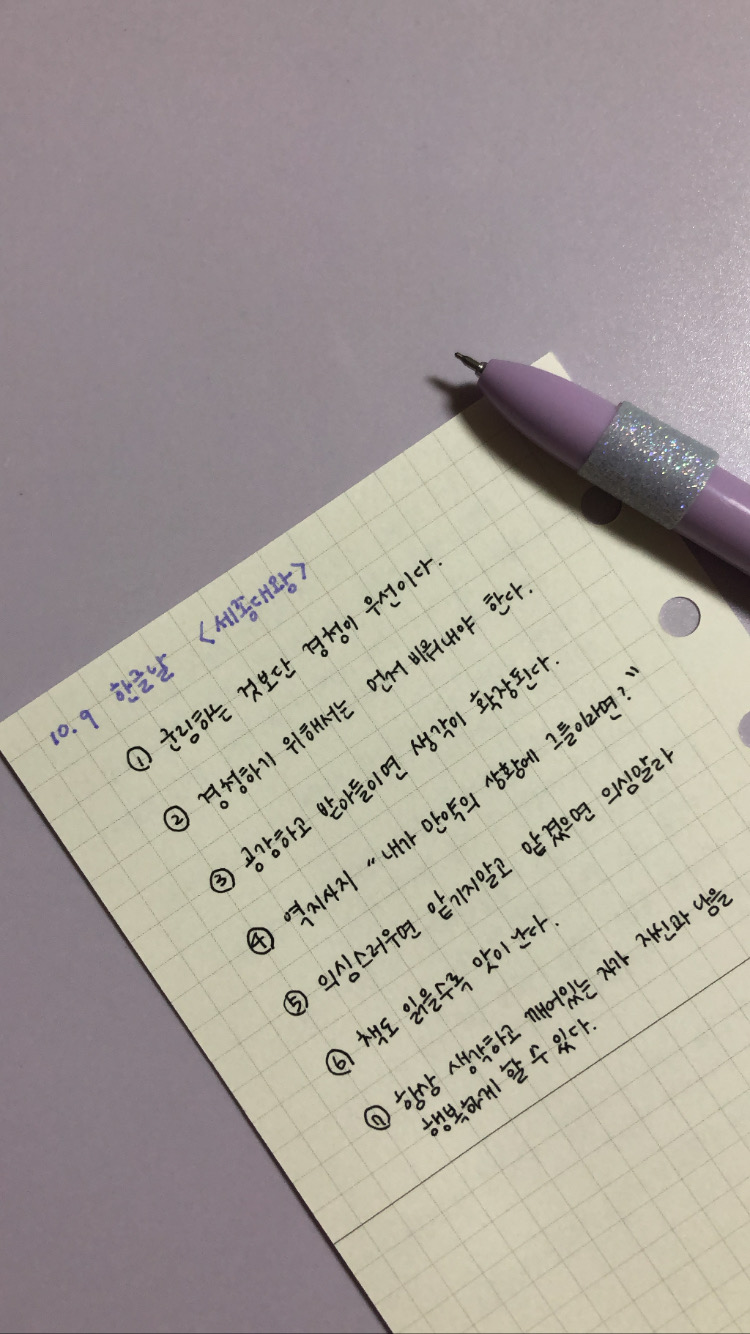 10.9 한글날 <세종대왕>
① 군림하는 것보단 경청이 우선이다.
② 경청하기 위해서는 먼저 비워내야 한다.
③ 공감하고 받아들이면 생각이 확장된다.
④ 역지사지 "내가 만약의 상황에 그들이라면?"
⑤ 의심스러우면 맡기지말고 맡겼으면 의심말라
⑥ 책도 읽을수록 맛이 난다.
⑦ 항상 생각하고 깨어있는 자가 자신과 남을
행복하게 할 수 있다.